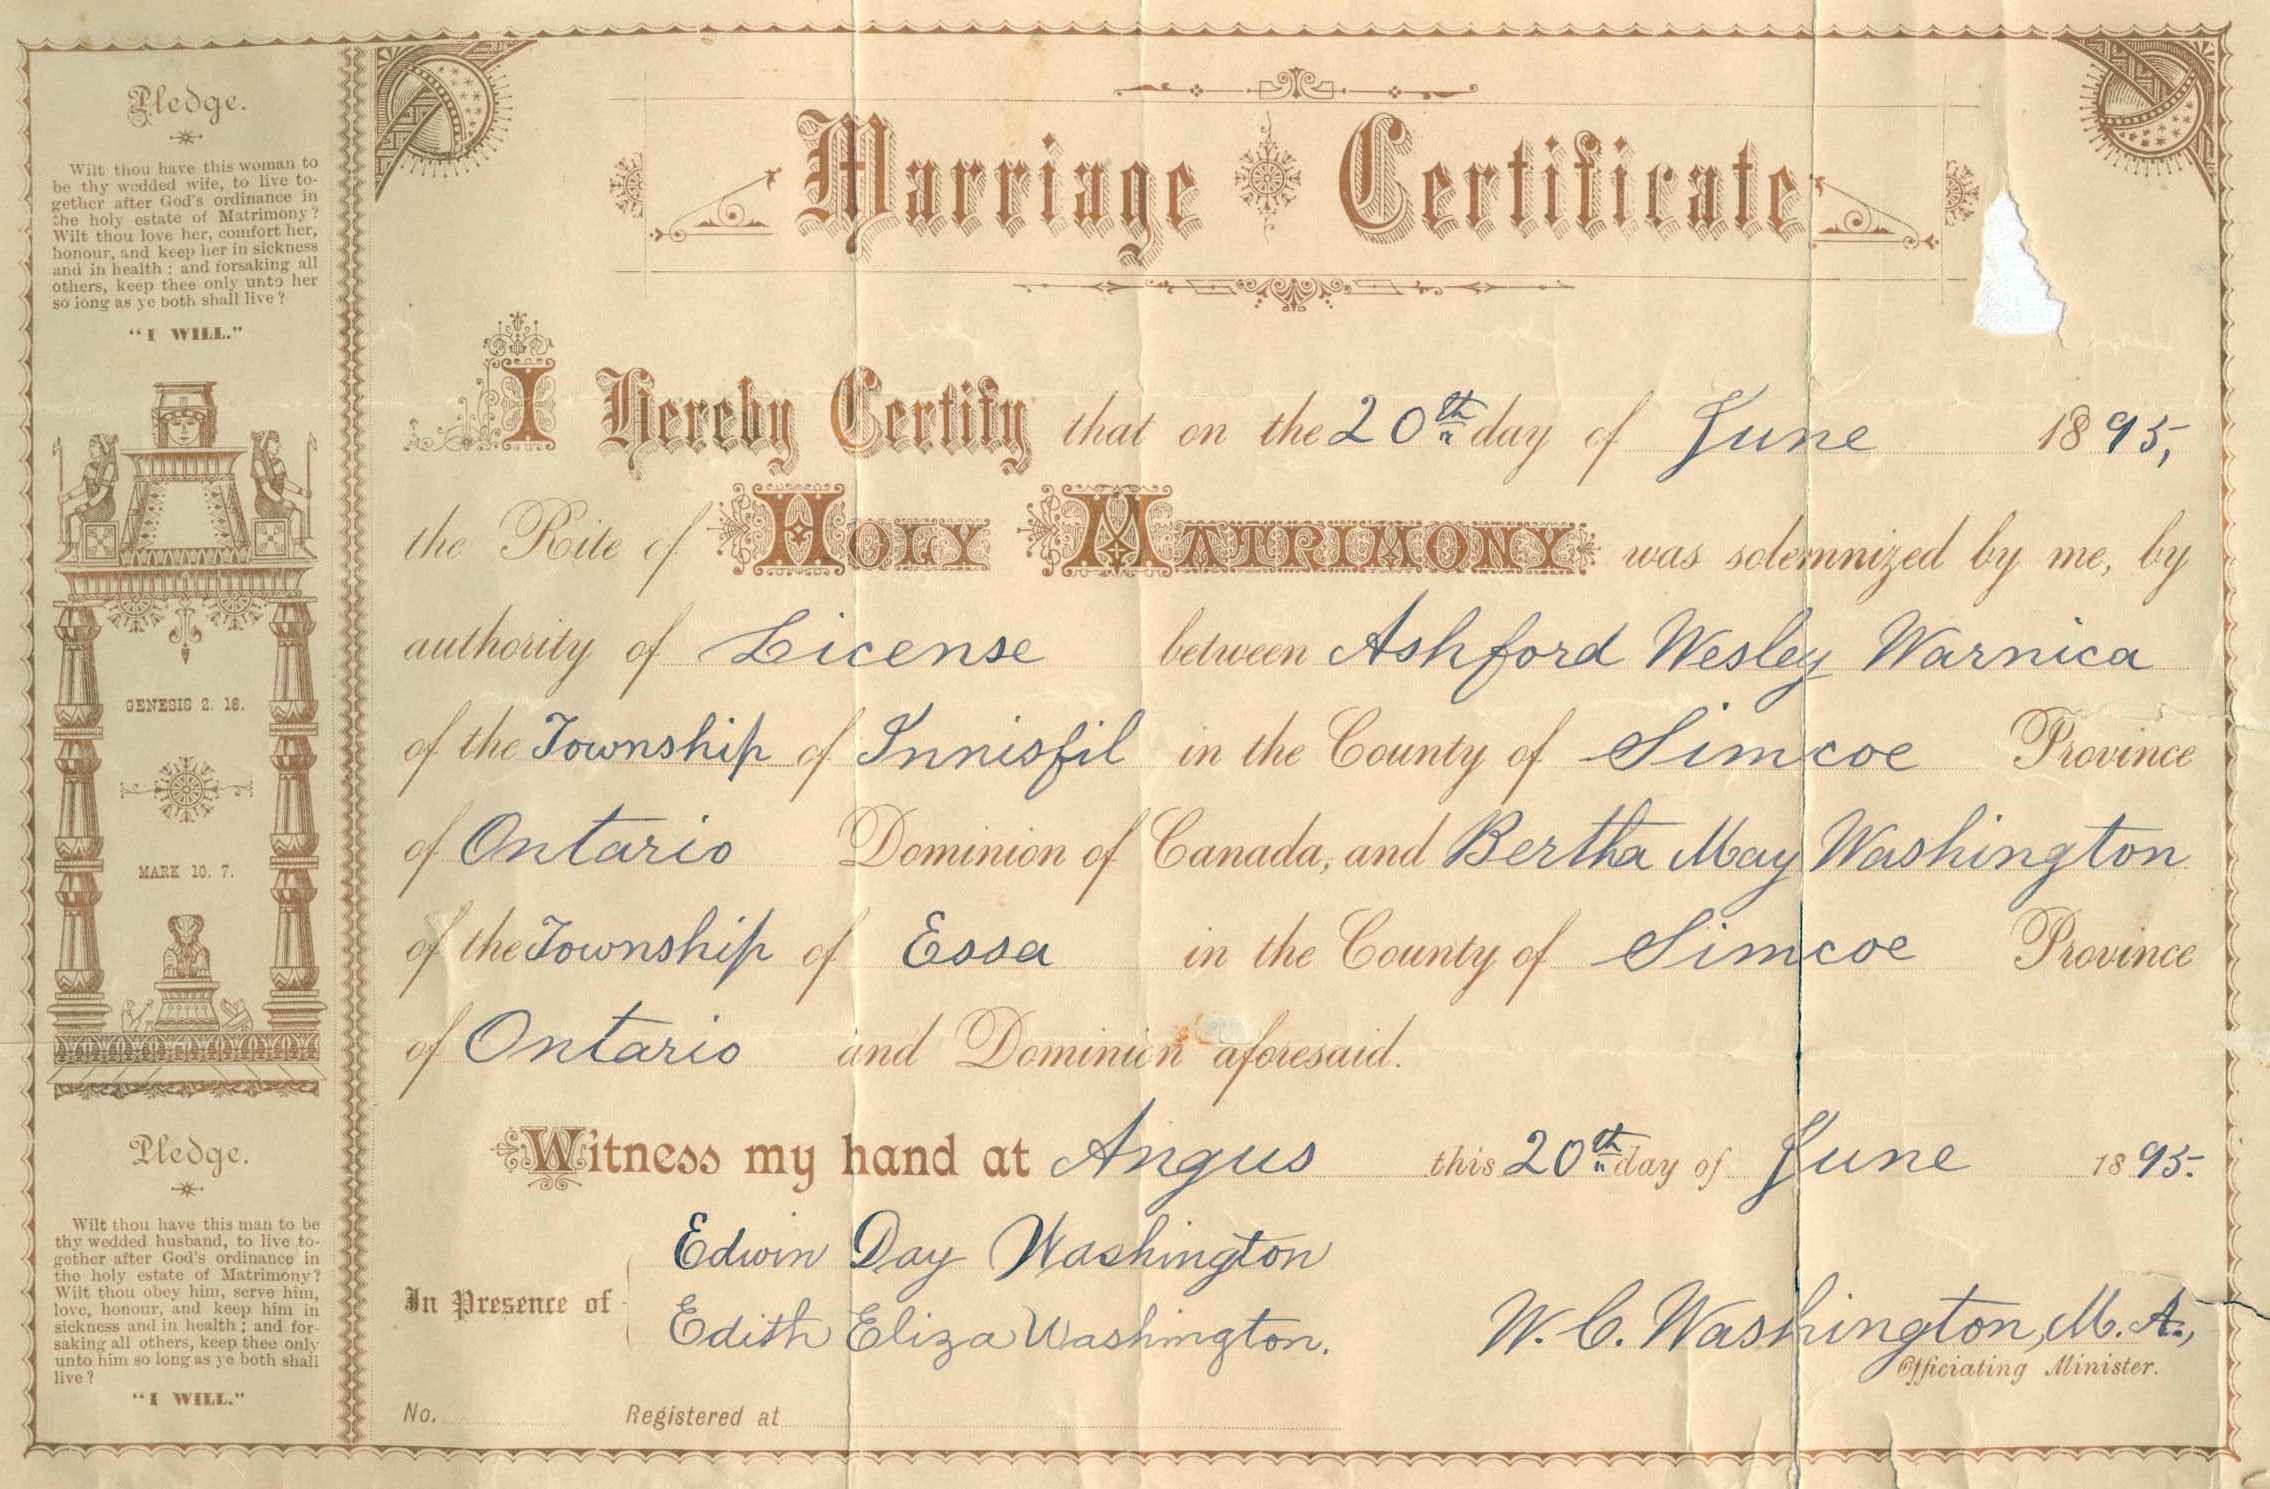 Pledge.
Wilt thou have this woman to
be thy wedded wife, to live to-
gether after God's ordinance in
the holy estate of Matrimony?
Wilt thou love her, comfort her,
honour, and keep her in sickness
and in health; and forsaking all
others, keep thee only unto her
so long as ye both shall live?
"I WILL."
GENESIS 2. 18.
MARK 10. 7.
Pledge.
Wilt thou have this man to be
thy wedded husband, to live to-
gether after God's ordinance in
the holy estate of Matrimony?
Wilt thou obey him, serve him,
love, honour, and keep him in
sickness and in health; and for-
saking all others, keep thee only
unto him so long as ye both shall
live?
"I WILL."
Marriage Certificate
I Hereby Certify that on the 20th day of June 1895,
the Rite of HOLY MATRIMONY was solemnized by me, by
authority of License between Ashford Wesley Warnica
of the Township of Innisfil in the County of Simcoe Province
of Ontario Dominion of Canada, and Bertha May Washington
of the Township of Essa in the County of Simcoe Province
of Ontario and Dominion aforesaid.
Witness my hand at Angus this 20th day of June 1895.
Edwin Day Washington
In Presence of
Edith Eliza Washington.
W. C. Washington, M. A.,
Officiating Minister.
No. Registered at